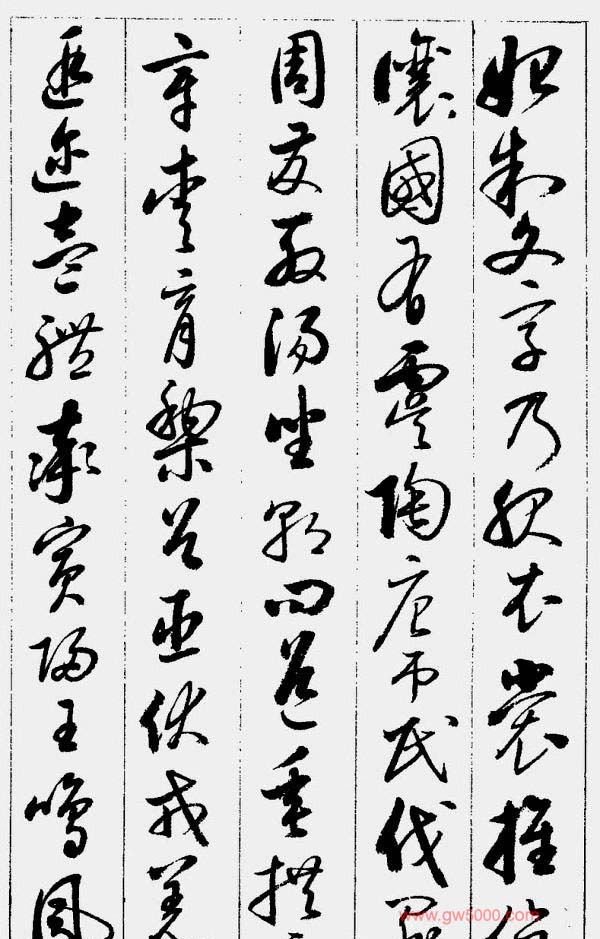 始制文字乃服衣裳推位
讓國有虞陶唐吊民伐罪
周發殷湯坐朝問道垂拱
章愛育黎首臣伏戎羌
遐迩壹體率賓歸王鳴鳳
www.gw5000.com